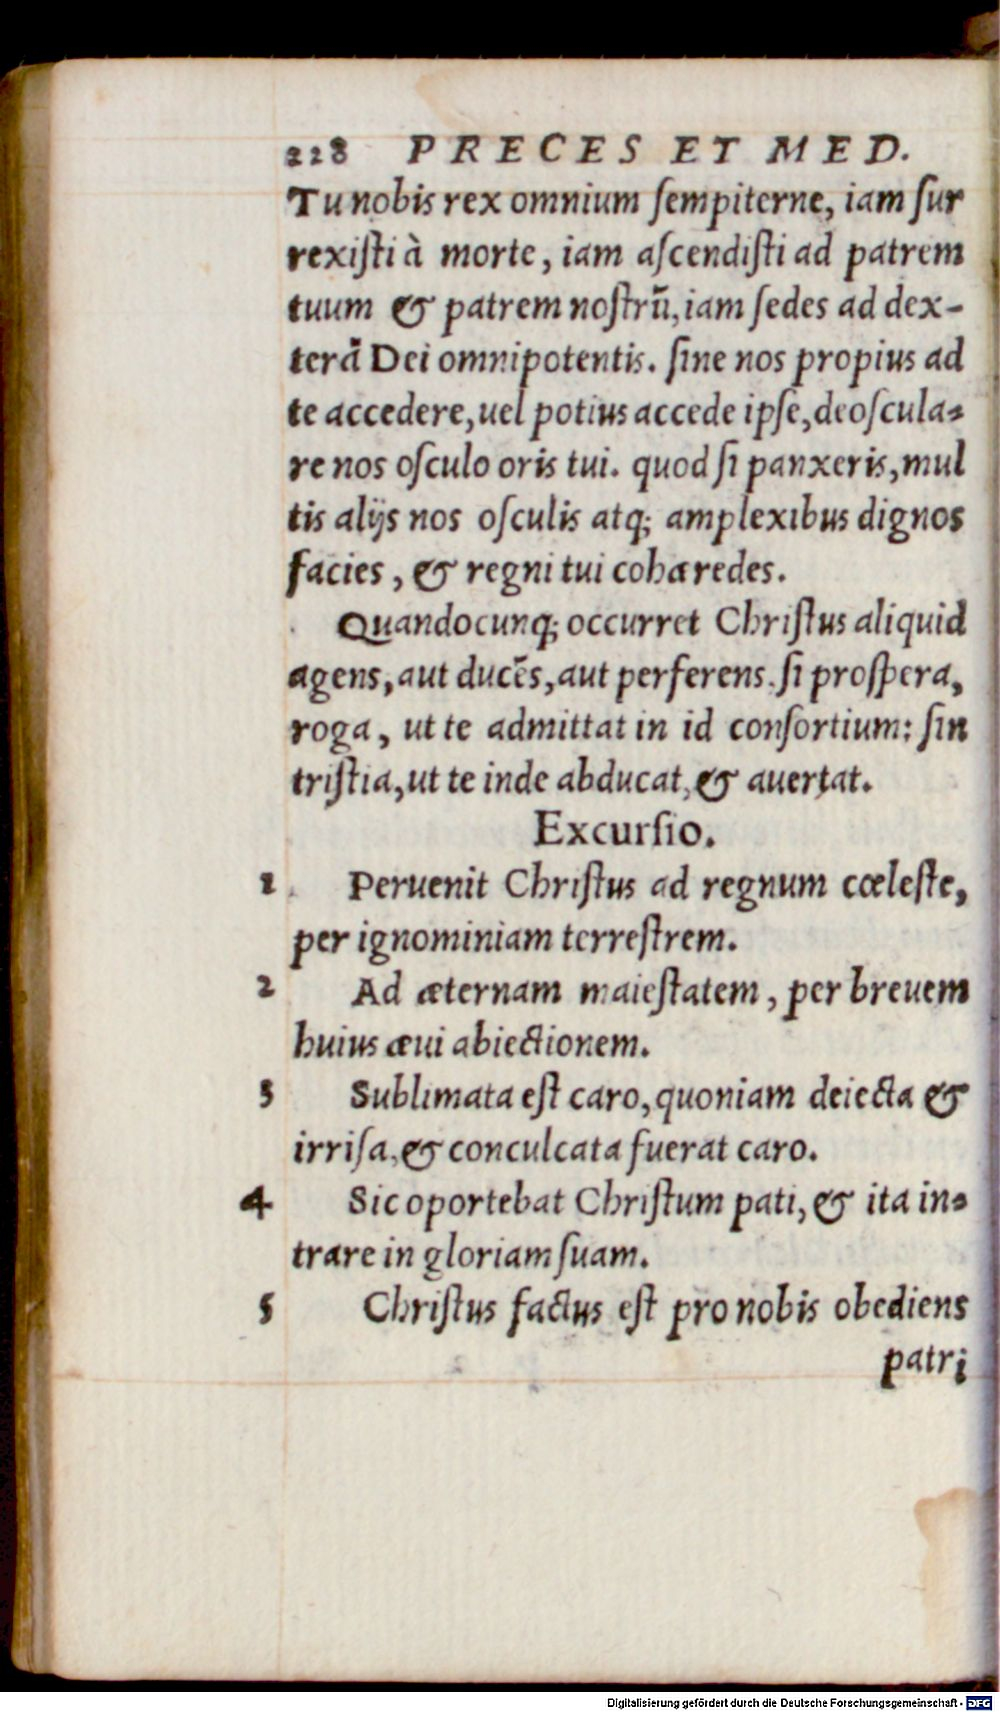 228 PRECES ET MED.
Tu nobis rex omnium ſempiterne, iam ſur
rexiſti à morte, iam aſcendiſti ad patrem
tuum & patrem noſtrũ, iam ſedes ad dex-
terã Dei omnipotentis. ſine nos propius ad
te accedere, uel potius accede ipſe, deoſcula-
re nos oſculo oris tui. quod ſi panxeris, mul
tis alijs nos oſculis atq; amplexibus dignos
facies, & regni tui cohæredes.
Quandocunq; occurret Chriſtus aliquid
agens, aut ducẽs, aut perferens. ſi proſpera,
roga, ut te admittat in id conſortium: ſin
triſtia, ut te inde abducat, & auertat.
Excurſio.
1 Peruenit Chriſtus ad regnum cœleſte,
per ignominiam terreſtrem.
2 Ad æternam maieſtatem, per breuem
huius æui abiectionem.
3 Sublimata eſt caro, quoniam deiecta &
irriſa, & conculcata fuerat caro.
4 Sic oportebat Chriſtum pati, & ita in-
trare in gloriam ſuam.
5 Chriſtus factus eſt pro nobis obediens
patri
Digitalisierung gefördert durch die Deutsche Forschungsgemeinschaft - DFG